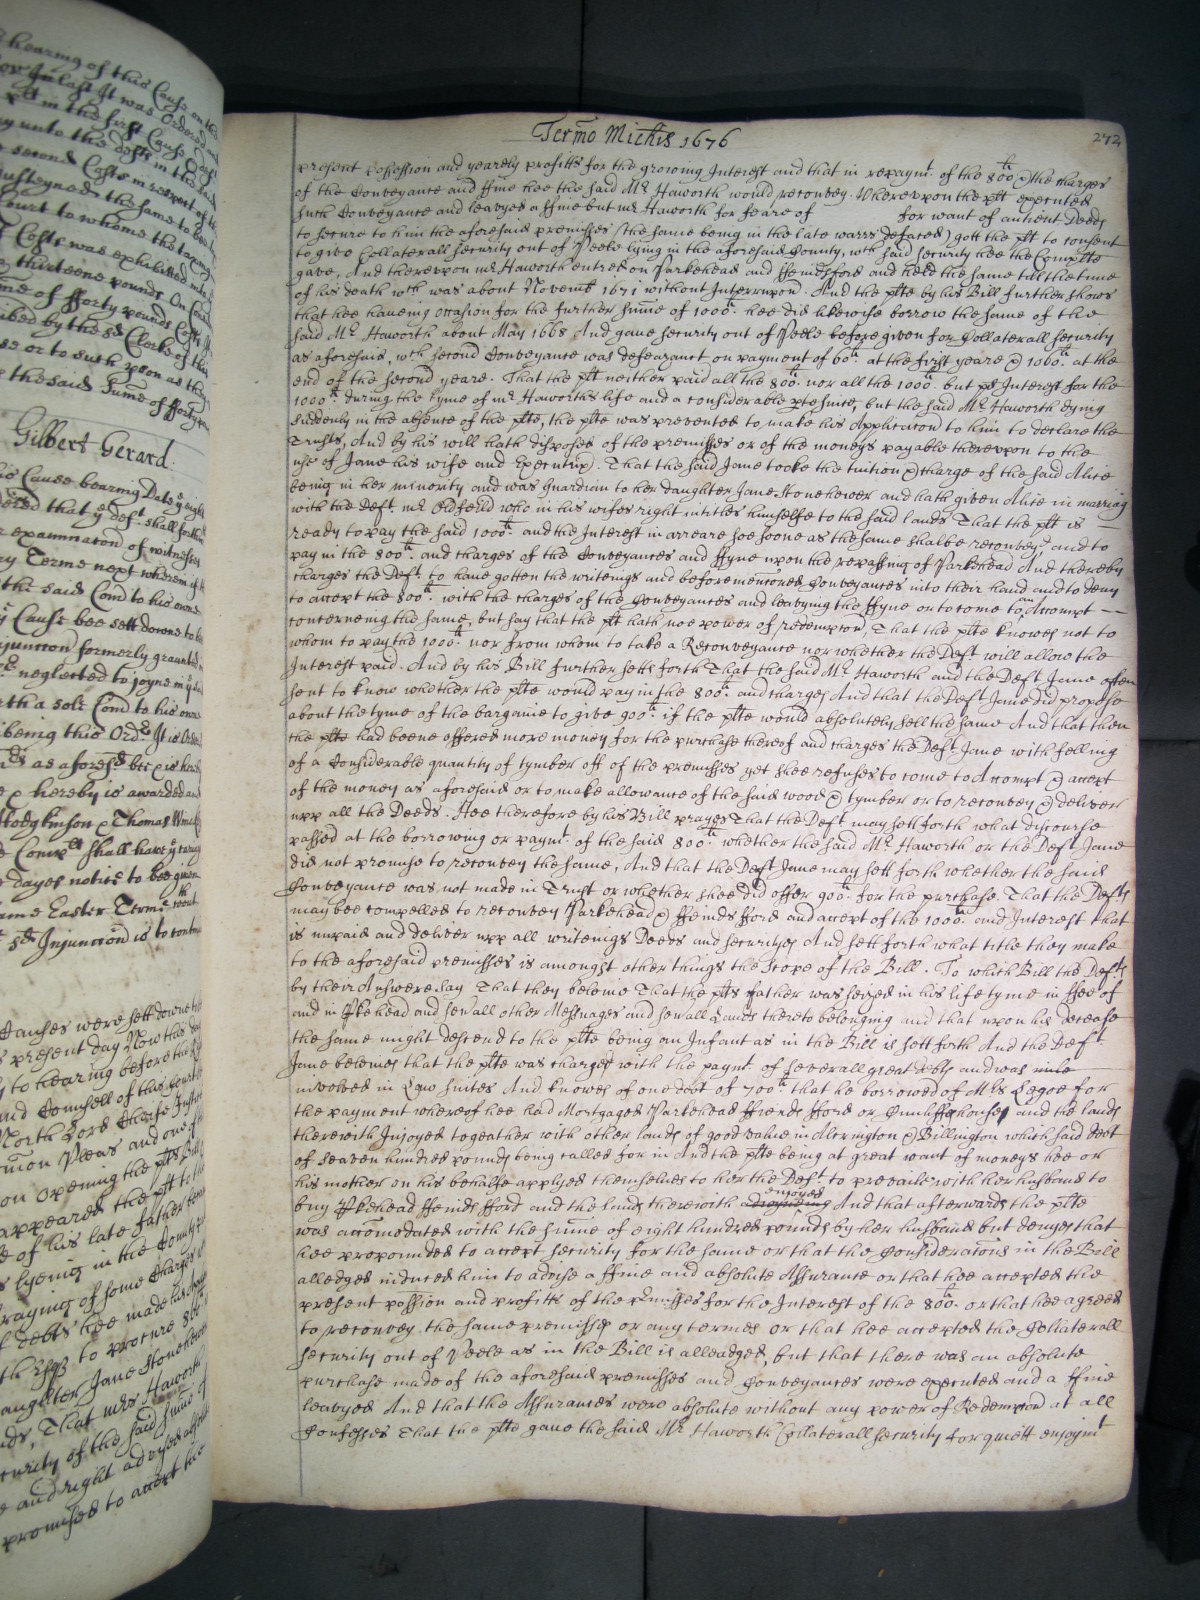 Termo Michis 1676
272
present possession and yearely profitts for the growing Interest and that in repaymt. of the 800li & the charges
of the Conveyance and ffine hee the said Mr. Haworth would reconvey. Wherevpon the plt executed
such Conveyance and leavyed a ffine but mr. Haworth for feare of for want of antient Deeds
to secure to him the aforesaid premisses (the same being in the late warrs defaced) gott the plt to consent
to give Collaterall security out of Peele lying in the aforesaid County, wch said security hee the Complte
gave, And therevpon mr. Haworth entred on Parkehead and ffeindsford and held the same till the time
of his death wch was about Novemb 1671 without Interrupon. And the plte by his Bill further shows
that hee haueing occasion for the further summe of 1000li. hee did likewise borrow the same of the
said Mr. Haworth about May 1668 And gaue security out of Peele before given for Collaterall security
as aforesaid, wch second Conveyance was defeazanct on payment of 60li. at the first yeare & 1060li. at the
end of the second yeare. That the plt neither paid all the 800li. nor all the 1000li. but pd Interest for the
1000li. during the tyme of mr. Haworths life and a considerable tyme since, but the said Mr. Haworth dying
suddenly in the absence of the plte, the plte was prevented to make his Applicacon to him to declare the
Trusts, And by his will hath disposed of the premisses or of the moneys payable therevpon to the
use of Jane his wife and Executrix. That the said Jane tooke the tuition & charge of the said Alice
being in her minority and was Guardian to her daughter Jane Stonehewer and hath given Alice in marriag
with the Deft. mr. Oldfeild who in his wifes right intitles himselfe to the said lands That the plt is
ready to pay the said 1000li. and the Interest in arreare soe soone as the same shalbe reconveyd. and to
pay in the 800li. and charges of the Conveyances and ffyne upon the repassing of Parkehead And thereby
charges the Deft. to haue gotten the writeings and beforemenconed Conveyances into their hand and to deny
to accept the 800li. with the charges of the Conveyances and leavying the ffyne or to come to an Accompt
concerneing the same, but say that the plt hath noe power of redempcon, That the plte knowes not to
whom to pay the 1000li. nor from whom to take a Reconveyance nor whether the Deft. will allow the
Interest paid. And by his Bill further setts forth That the said Mr. Haworth and the Deft. Jane often
sent to know whether the plte would pay in the 800li. and charges And that the Deft. Jane did propose
about the tyme of the bargaine to give 900li. if the plte would absolutely sell the same And that then
the plte had beene offered more money for the purchase thereof and charges the Deft. Jane with selling
of a Considerable quantity of tymber off of the premisses yet shee refuses to come to Accompt & accept
of the money as aforesaid or to make allowance of the said wood & tymber or to reconvey & deliver
upp all the Deeds. Hee therefore by his Bill prayes That the Deft. may sett forth what discourse
passed at the borrowing or paymt. of the said 800li. whether the said Mr. Haworth or the Deft. Jane
did not promise to reconvey the same, And that the Deft. Jane may sett forth whether the said
Conveyance was not made in Trust or whether shee did offer 900li. for the purchase. That the Defts
may bee compelled to reconvey Parkehead & ffeinds fford and accept of the 1000li. and Interest that
is unpaid and deliver upp all writeings Deeds and securityes And sett forth what title they make
to the aforesaid premisses is amongst other things the scope of the Bill. To which Bill the Defts.
by their Answere say That they beleive That the plts father was seized in his life tyme in ffee of
and in Pkehead and sevall other Messuages and sevall Lands thereto belonging and that upon his decease
the same might descend to the plte being an Infant as in the Bill is sett forth And the Deft.
Jane beleives that the plte was charged with the paymt. of severall great debts and was
involved in Law suites And knowes of one debt of 700li. that he borrowed of Mrs Legoe for
the payment whereof hee had Mortgaged Parkehead ffiends fford or Cunliffe house and the lands
therewith Injoyed togeather with other lands of good value in Alvington & Billington which said debt
of seaven hundred pounds being called for in And the plte being at great want of moneys hee or
his mother on his behalfe applyed themselves to her the Deft. to prevaile with her husband to
buy Pkehead ffeinds fford and the lands therewith enjoyed And that afterwards the plte
was accomodated with the summe of eight hundred pounds by her husband but denyes that
hee propounded to accept security for the same or that the Consideracons in the Bill
alledged induced him to advise a ffine and absolute Assurance or that hee accepted the
present possion and profitts of the pmisses for the Interest of the 800li. or that hee agreed
to reconvey the same premisses or any termes or that hee accepted the Collaterall
security out of Peele as in the Bill is alleadged, but that there was an absolute
purchase made of the aforesaid premisses and Conveyances were executed and a ffine
leavyed And that the Assurances were absolute without any power of Redempcon at all
Confesses That the plte gaue the said Mr. Haworth Collaterall security for quiett enjoymt
hearing of this Cause on the
last It was Ordered
plt in the first Cause
unto the defts in the said
second Costs in respect of
susteyned the same to bee
Court to whome the taxing
Costs was exhibitted into
thirteene pounds
of fforty pounds Costs
the sd Clerke of this
or to such pson as they
the said Sume of fforty
Gilbert Gerard.
Cause bearing Date ye eight
dered that ye deft. shall
examinacon of witnesses
Terme next wherein
the said Comd to his owne
Cause bee sett downe to
Injunction formerly graunted
neglected to joyne in
a sole Comd to his owne
being this Ordr. It is
as aforesd bee
hereby is awarded
Hodgkinson & Thomas
shall have
dayes notice to bee given
Easter Terme next
sd. Injunccon is to contin
Causes were sett downe
present day Now this
to hearing before the
and Councell of this Court
North Lord Cheife Justice
mon Pleas and one of
on opening the plts Bill
appeared the plt
of his late father
lyeing in the County
raying of some charges
debts hee made
to procure 800li
daughter Jane Stonehewer
That mrs Haworth
curity of the said sume of
and right advysed
promised to accept the